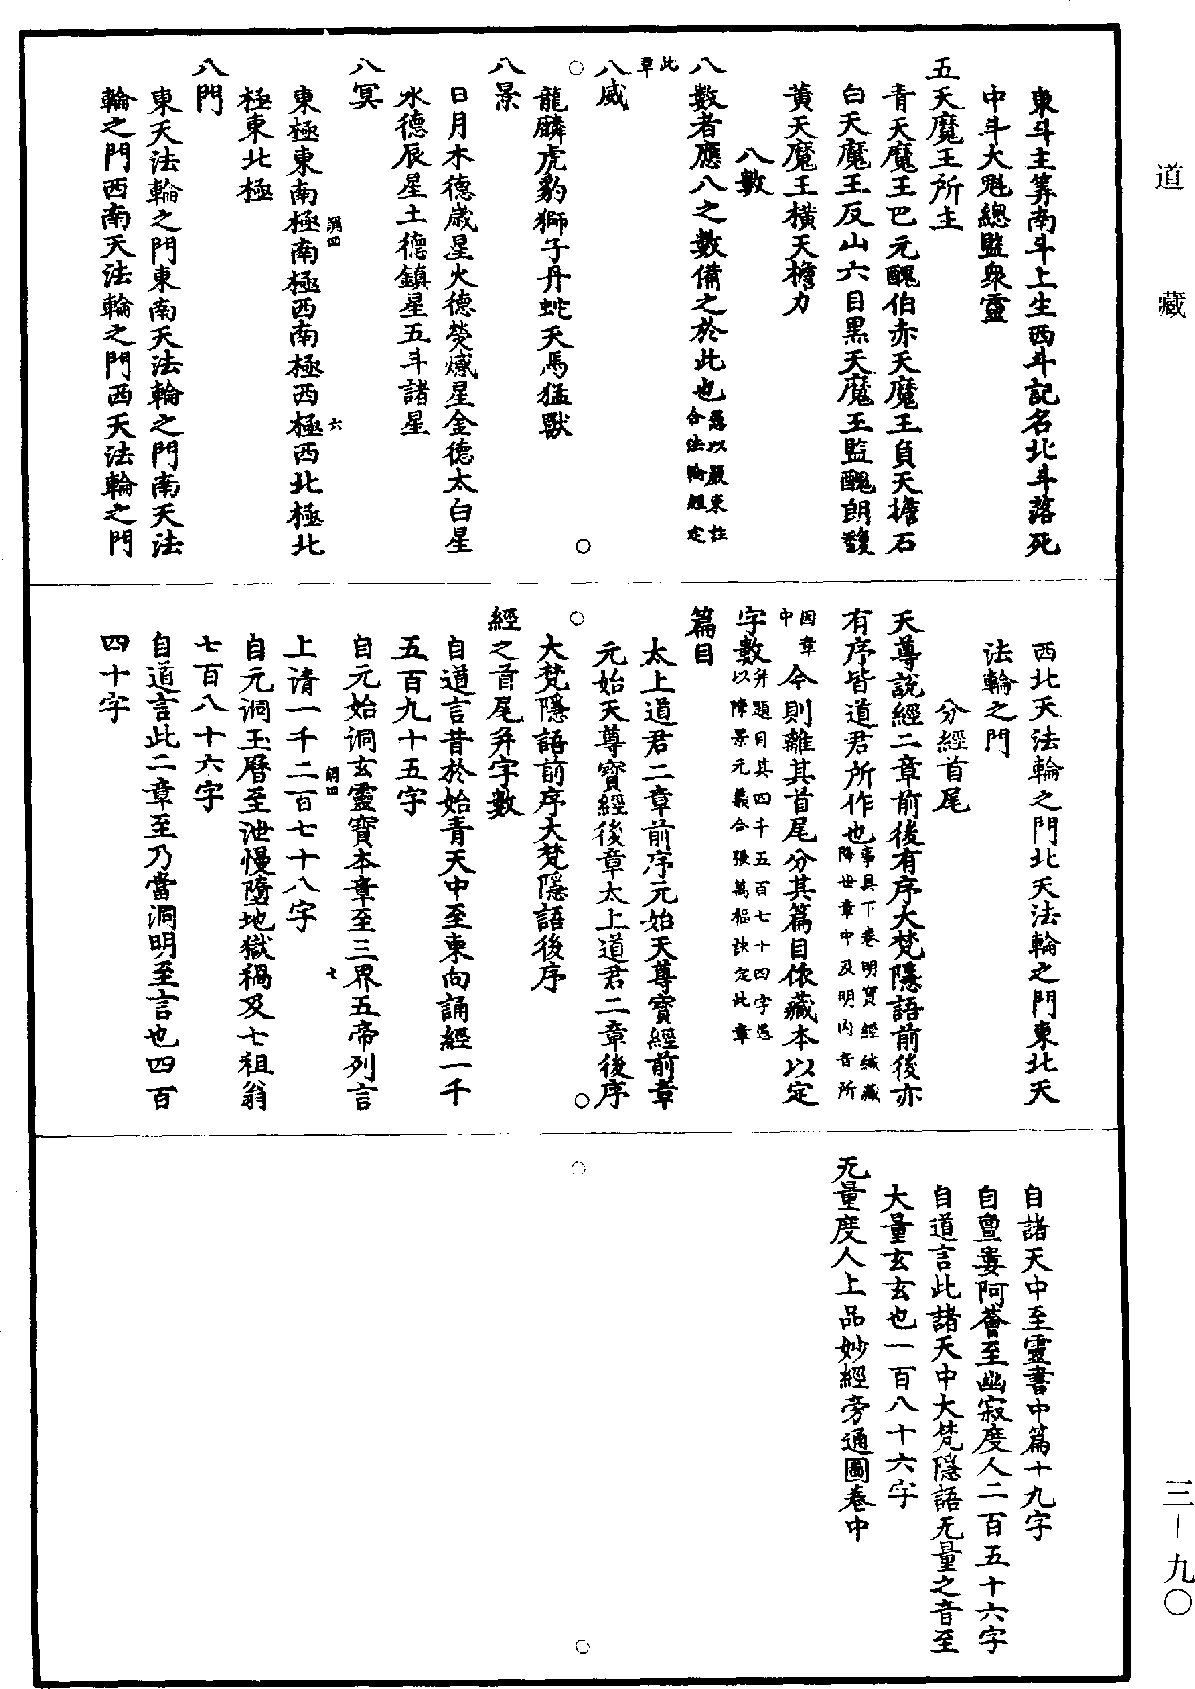 道藏
三－九〇
東斗主筭南斗上生西斗記名北斗落死
中斗大魁總監衆靈
五天魔王所主
青天魔王巴元醜伯赤天魔王負天擔石
白天魔王反山六目黑天魔王監醜朗馥
黃天魔王橫天擔力
八數
八數者應八之數備之於此也愚以嚴東註
合法輪經定
此章
八威
龍麟虎豹獅子丹蛇天馬猛獸
八景
日月木德歲星火德熒惑星金德太白星
水德辰星土德鎮星五斗諸星
八冥
東極東南極南極西南極西極西北極北
極東北極
八門
東天法輪之門東南天法輪之門南天法
輪之門西南天法輪之門西天法輪之門
西北天法輪之門北天法輪之門東北天
法輪之門
分經首尾
天尊說經二章前後有序大梵隱語前後亦
有序皆道君所作也事具下卷明寶經緘藏
降世章中及明內音所
因章
中
今則離其首尾分其篇目依藏本以定
字數并題目其四千五百七十四字愚
以陣景元義合張萬福訣定此章
篇目
太上道君二章前序元始天尊寶經前章
元始天尊寶經後章太上道君二章後序
大梵隱語前序大梵隱語後序
經之首尾并字數
自道言昔於始青天中至東向誦經一千
五百九十五字
自元始洞玄靈寶本章至三界五帝列言
上清一千二百七十八字
自元洞玉曆至泄慢墮地獄禍及七祖翁
七百八十六字
自道言此二章至乃當洞明至言也四百
四十字
自諸天中至靈書中篇十九字
自亶婁阿薈至幽寂度人二百五十六字
自道言此諸天中大梵隱語无量之音至
大量玄玄也一百八十六字
无量度人上品妙經旁通圖卷中